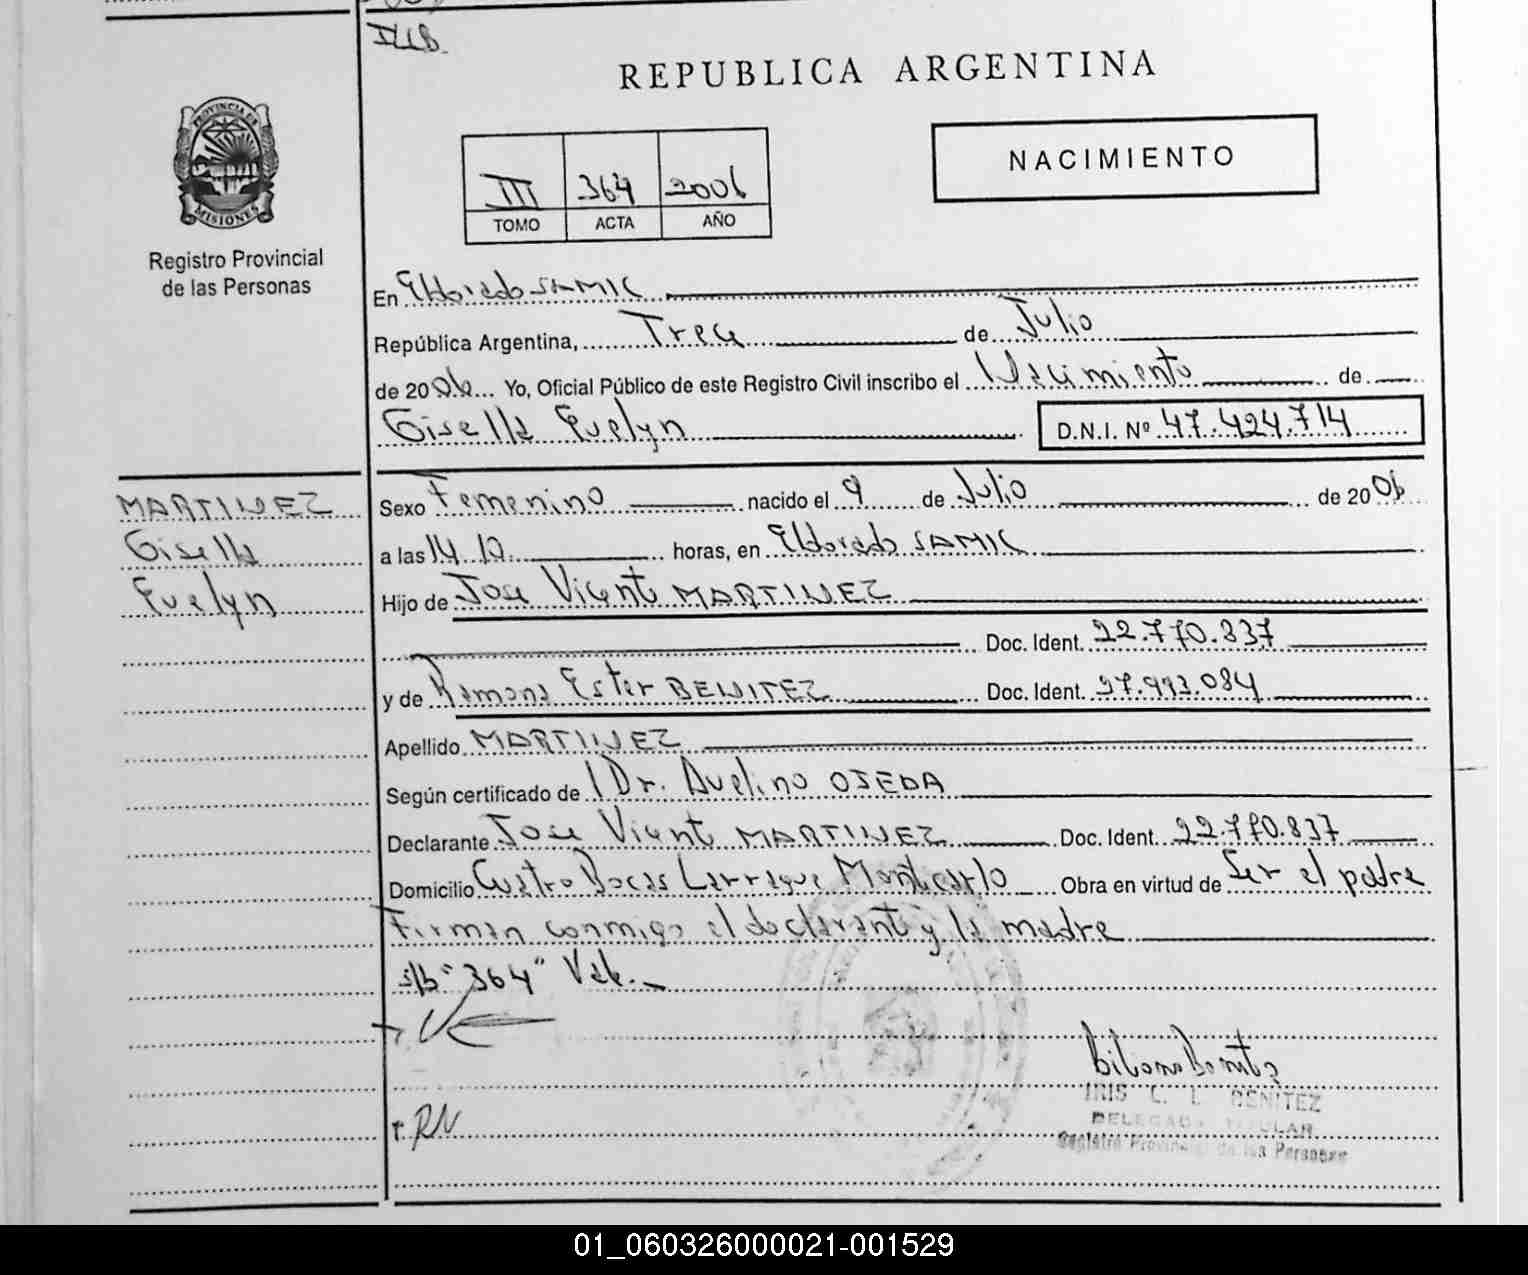 REPUBLICA ARGENTINA
PROVINCIA DE
MISIONES
Registro Provincial
de las Personas
NACIMIENTO
III 364 2006
TOMO ACTA AÑO
En Eldorado SAMIC
República Argentina, Trece de Julio
de 2006 Yo, Oficial Público de este Registro Civil inscribo el Nacimiento de
Gisella Evelyn D.N.I. Nº 47.424.714
MARTINEZ
Gisella
Evelyn
Sexo Femenino nacido el 9 de Julio de 2006
a las 14 10 horas, en Eldorado SAMIC
Hijo de Jose Vicente MARTINEZ
Doc. Ident. 22.770.837
y de Ramona Ester BENITEZ Doc. Ident. 27.993.084
Apellido MARTINEZ
Según certificado de Dr. Avelino OJEDA
Declarante Jose Vicente MARTINEZ Doc. Ident. 22.770.837
Domicilio Cuatro Bocas Larraque Montecarlo Obra en virtud de Ser el padre
Firman conmigo el declarante y la madre
s/b "364" Vale.
IRIS C. I. BENITEZ
DELEGADA TITULAR
Registro Provincial de las Personas
01_060326000021-001529